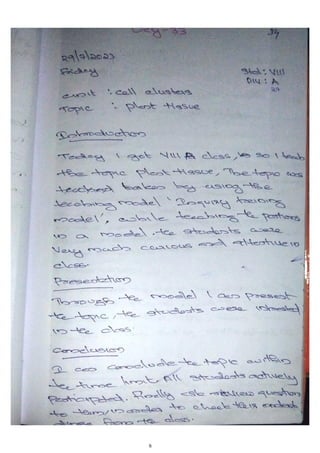 Day-33
39
29/9/2023
Friday
Std : VIII
DIV : A
unit : cell clusters
Topic : plant tissue
Introduction
Today I got VIII A class, so I teach
the topic plant tissue, The topic was
teached taken by using the
teaching model 'Inquiry training
model', while teaching the portions
in a model the students were
very much curious and attentive in
class.
Presentation
Through the model I can present
the topic, the students were intrested
in the class.
Conclusion
I can conclude the topic within
the time limit. All students actively
participated. Finally ask review question
to them, in order to check their
from the class.
9